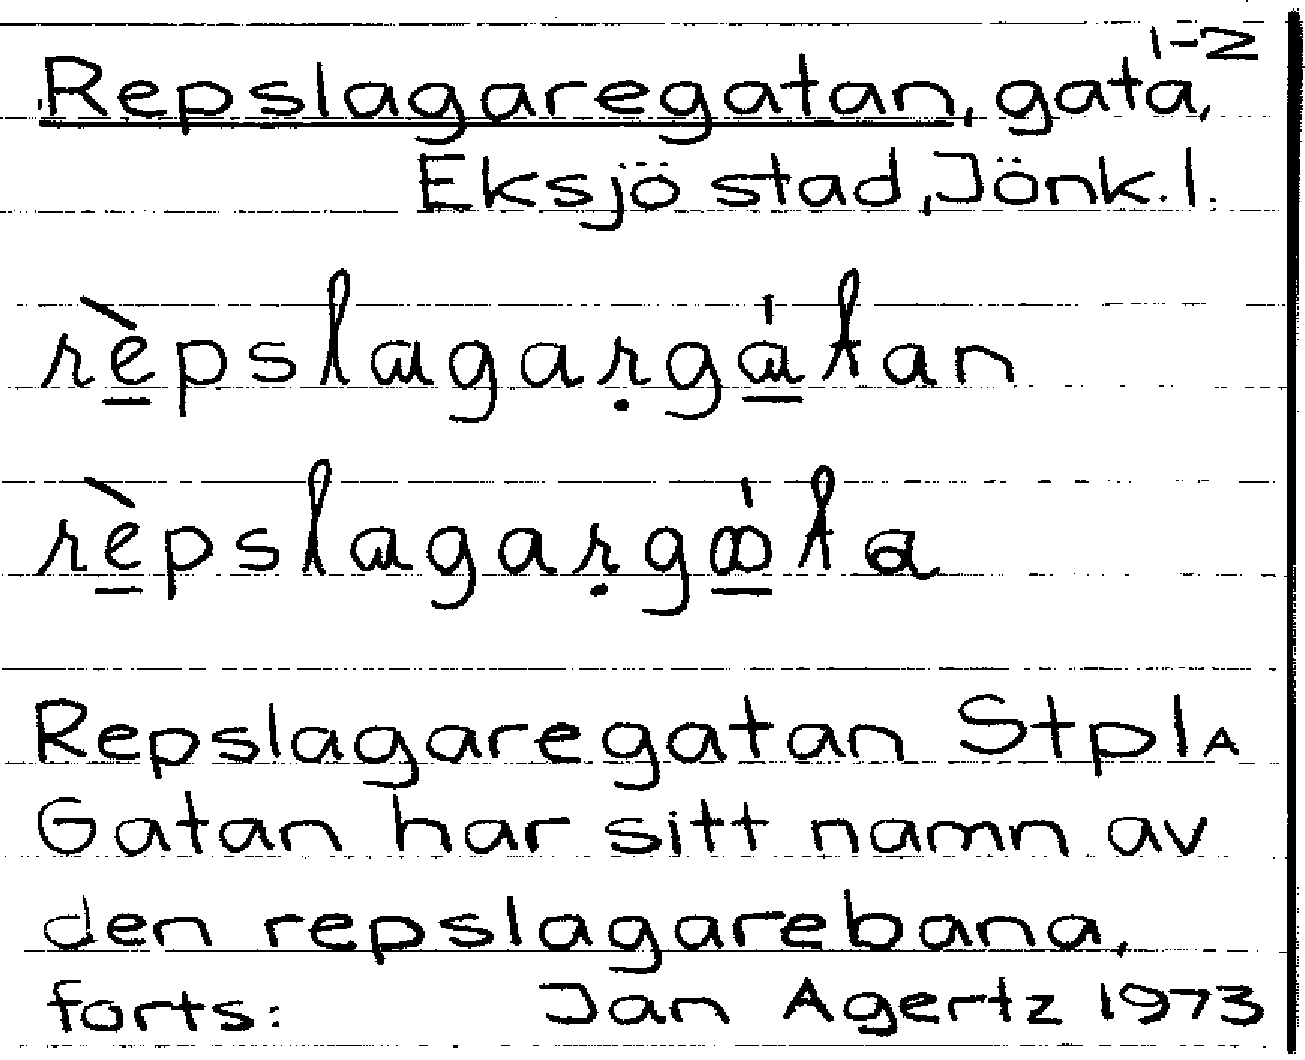 1-2
Repslagaregatan, gata,
Eksjö stad, Jönk. l.
rèpslagargátan
rèpslagargáta
Repslagaregatan StplA
Gatan har sitt namn av
den repslagarebana,
forts: Jan Agertz 1973